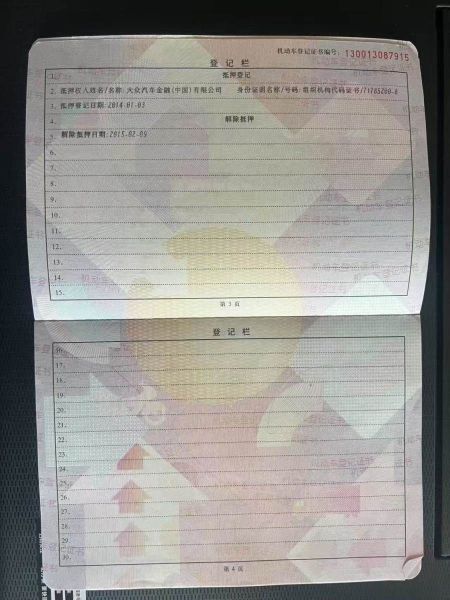 机动车登记证书编号：130013087915
登记栏
1. 抵押登记
2. 抵押权人姓名/名称:大众汽车金融(中国)有限公司 身份证明名称/号码:组织机构代码证书/71785200-8
3. 抵押登记日期:2014-01-03
4. 解除抵押
5. 解除抵押日期:2015-02-09
6.
7.
8.
9.
10.
11.
12.
13.
14.
15.
第 3 页
登记栏
16.
17.
18.
19.
20.
21.
22.
23.
24.
25.
26.
27.
28.
29.
30.
第 4 页